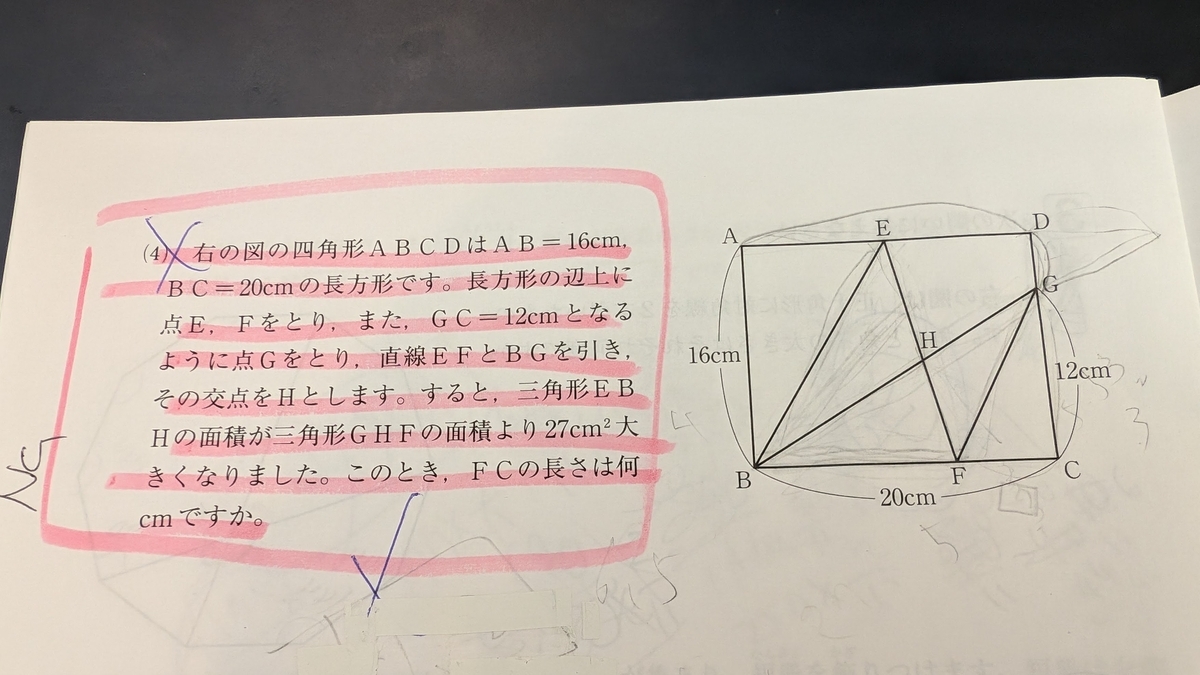 (4) 右の図の四角形ABCDはAB＝16cm，
BC＝20cmの長方形です。長方形の辺上に
点E，Fをとり，また，GC＝12cmとなる
ように点Gをとり，直線EFとBGを引き，
その交点をHとします。すると，三角形EB
Hの面積が三角形GHFの面積より27cm²大
きくなりました。このとき，FCの長さは何
cmですか。
A
E
D
G
H
16cm
12cm
B
F
C
20cm